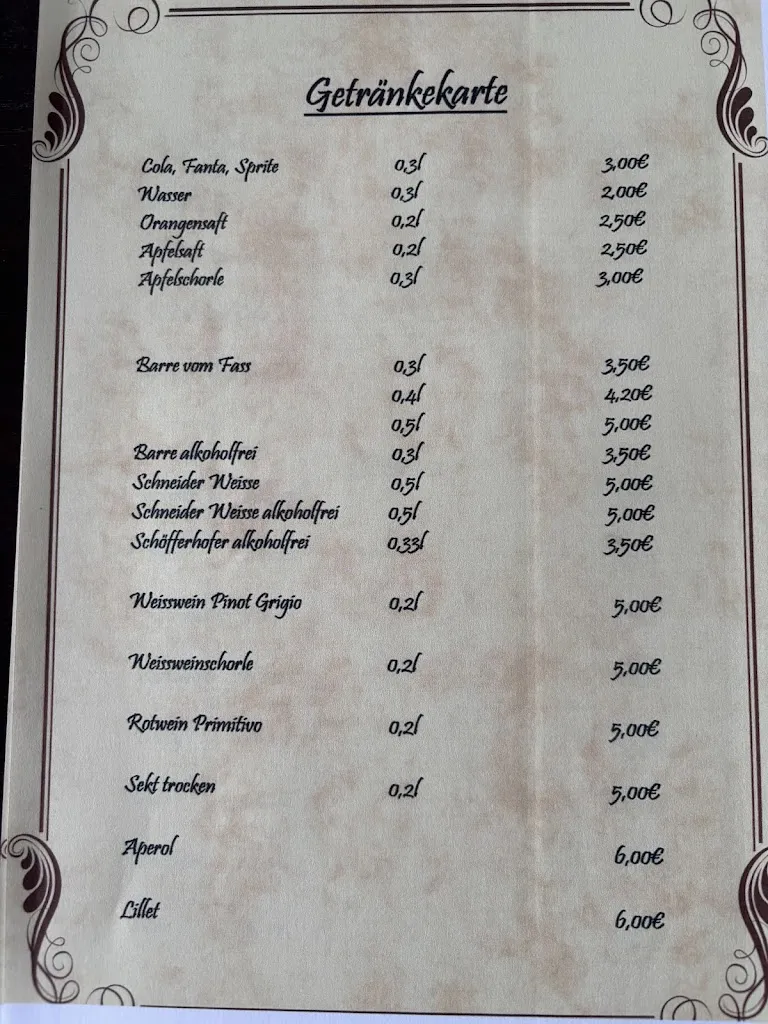 Getränkekarte
Cola, Fanta, Sprite 0,3l 3,00€
Wasser 0,3l 2,00€
Orangensaft 0,2l 2,50€
Apfelsaft 0,2l 2,50€
Apfelschorle 0,3l 3,00€
Barre vom Fass 0,3l 3,50€
0,4l 4,20€
0,5l 5,00€
Barre alkoholfrei 0,3l 3,50€
Schneider Weisse 0,5l 5,00€
Schneider Weisse alkoholfrei 0,5l 5,00€
Schöfferhofer alkoholfrei 0,33l 3,50€
Weisswein Pinot Grigio 0,2l 5,00€
Weissweinschorle 0,2l 5,00€
Rotwein Primitivo 0,2l 5,00€
Sekt trocken 0,2l 5,00€
Aperol 6,00€
Lillet 6,00€